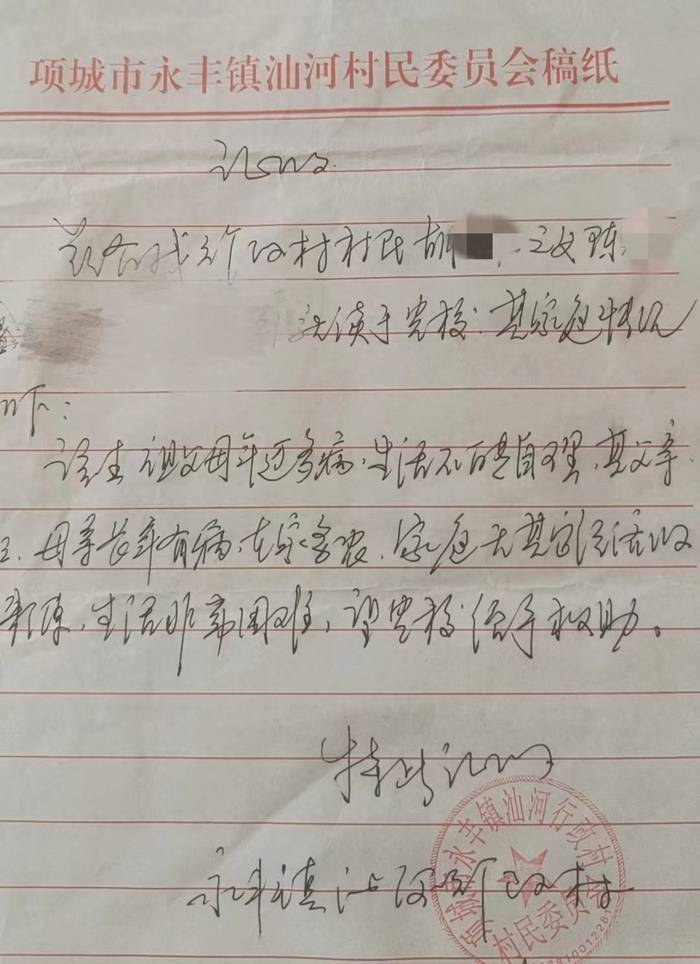 项城市永丰镇汕河村民委员会稿纸
证明
兹有我行政村村民胡 之女陈
就读于贵校.其家庭情况
如下:
该生祖父母年迈多病.生活不能自理.其父亲.
母亲长年有病.在家务农.家庭无其它经济收
来源.生活非常困难,望贵校给予救助。
特此证明
永丰镇汕河行政村
永丰镇汕河行政村
村民委员会